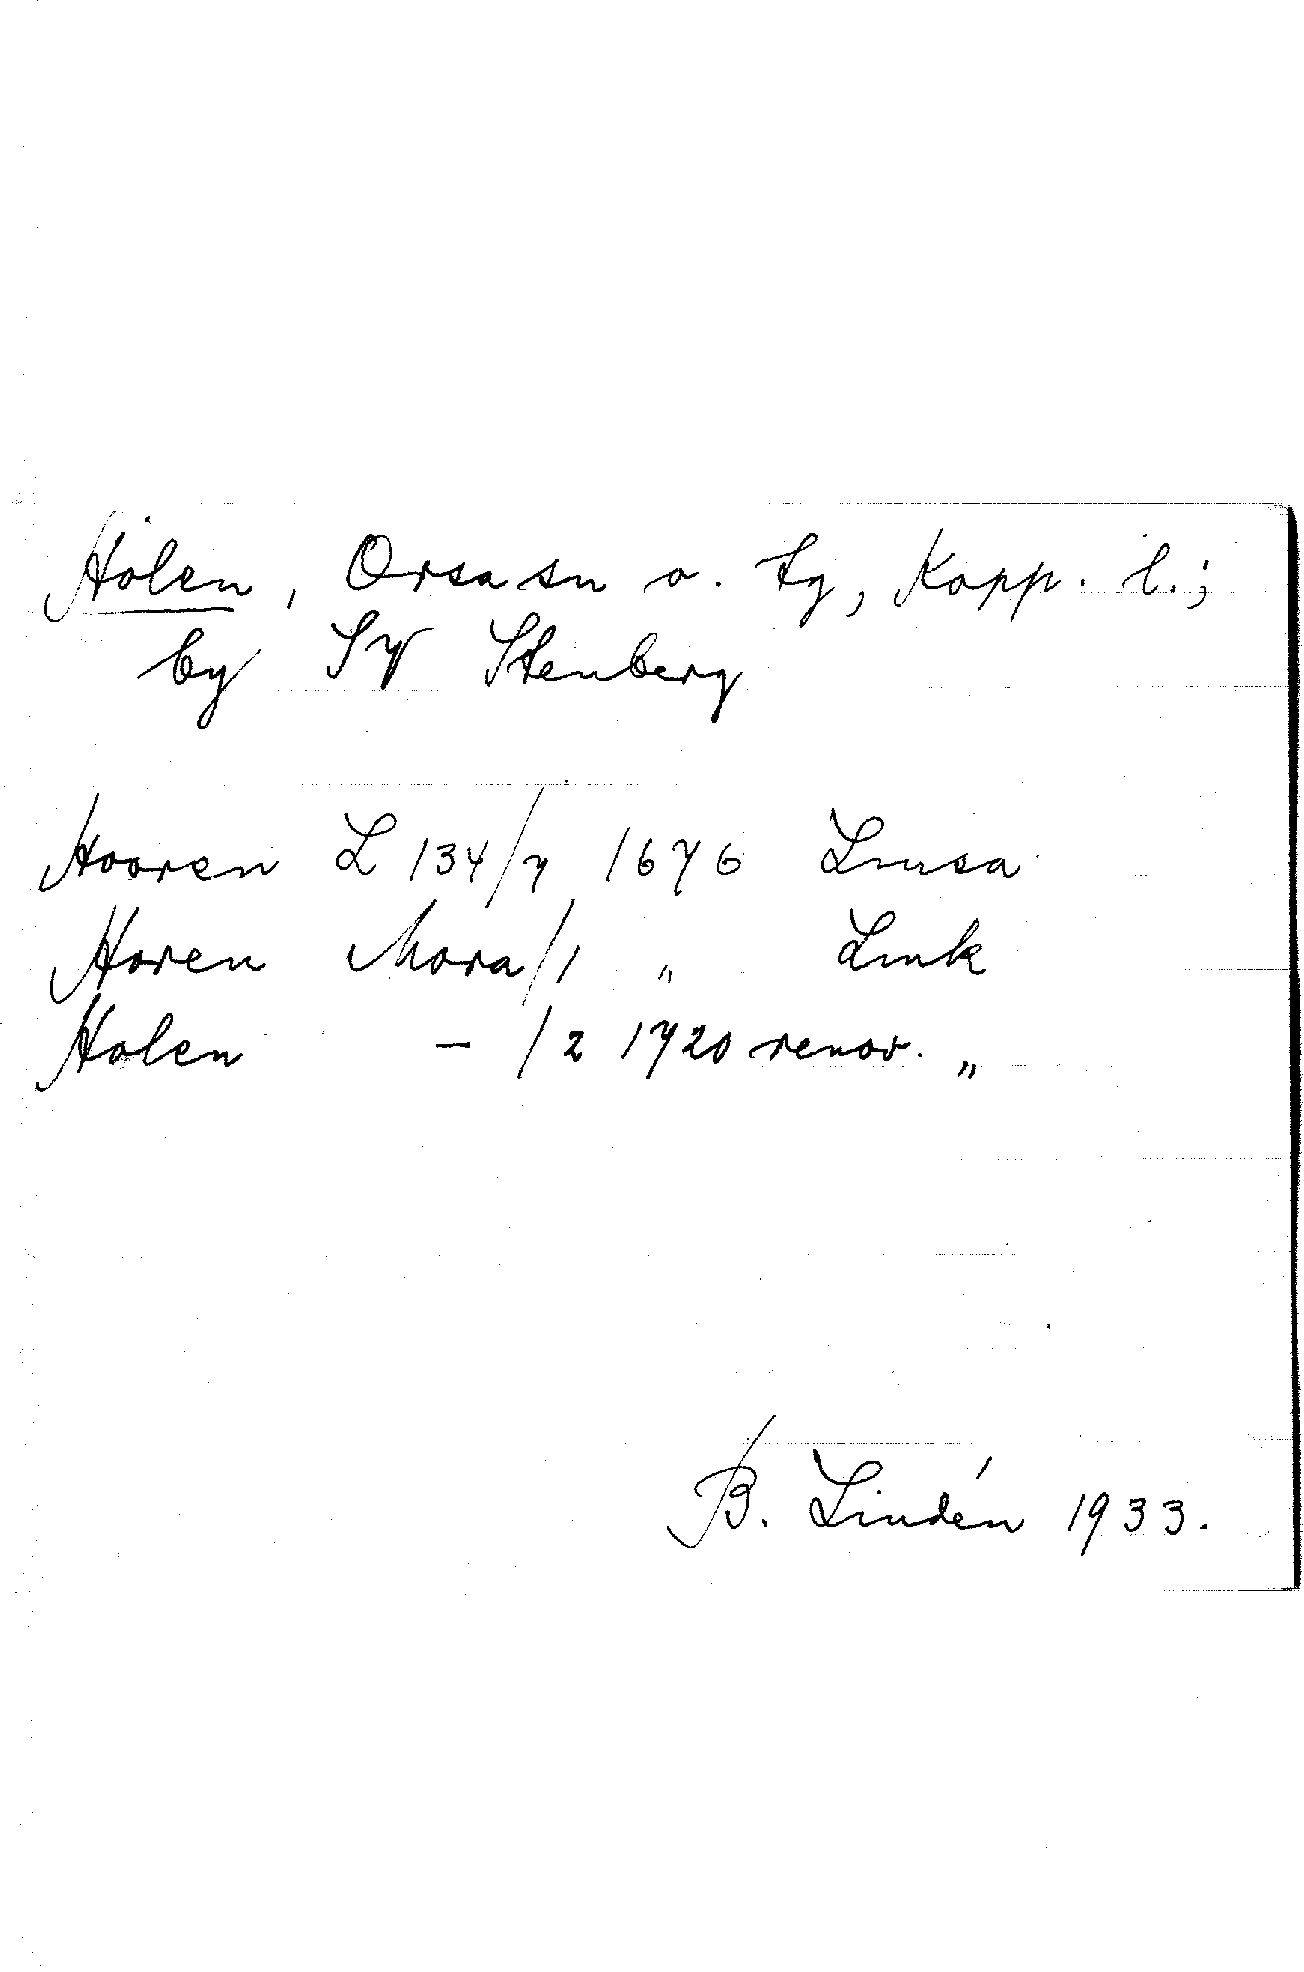 Holen, Orsa sn o. tg, Kopp. l.;
by SV Stenberg
Hooren L 134/7 1676 Lmsa
Horen Mora/1 " Lmk
Holen - /2 1720 renov. "
B. Lindén 1933.